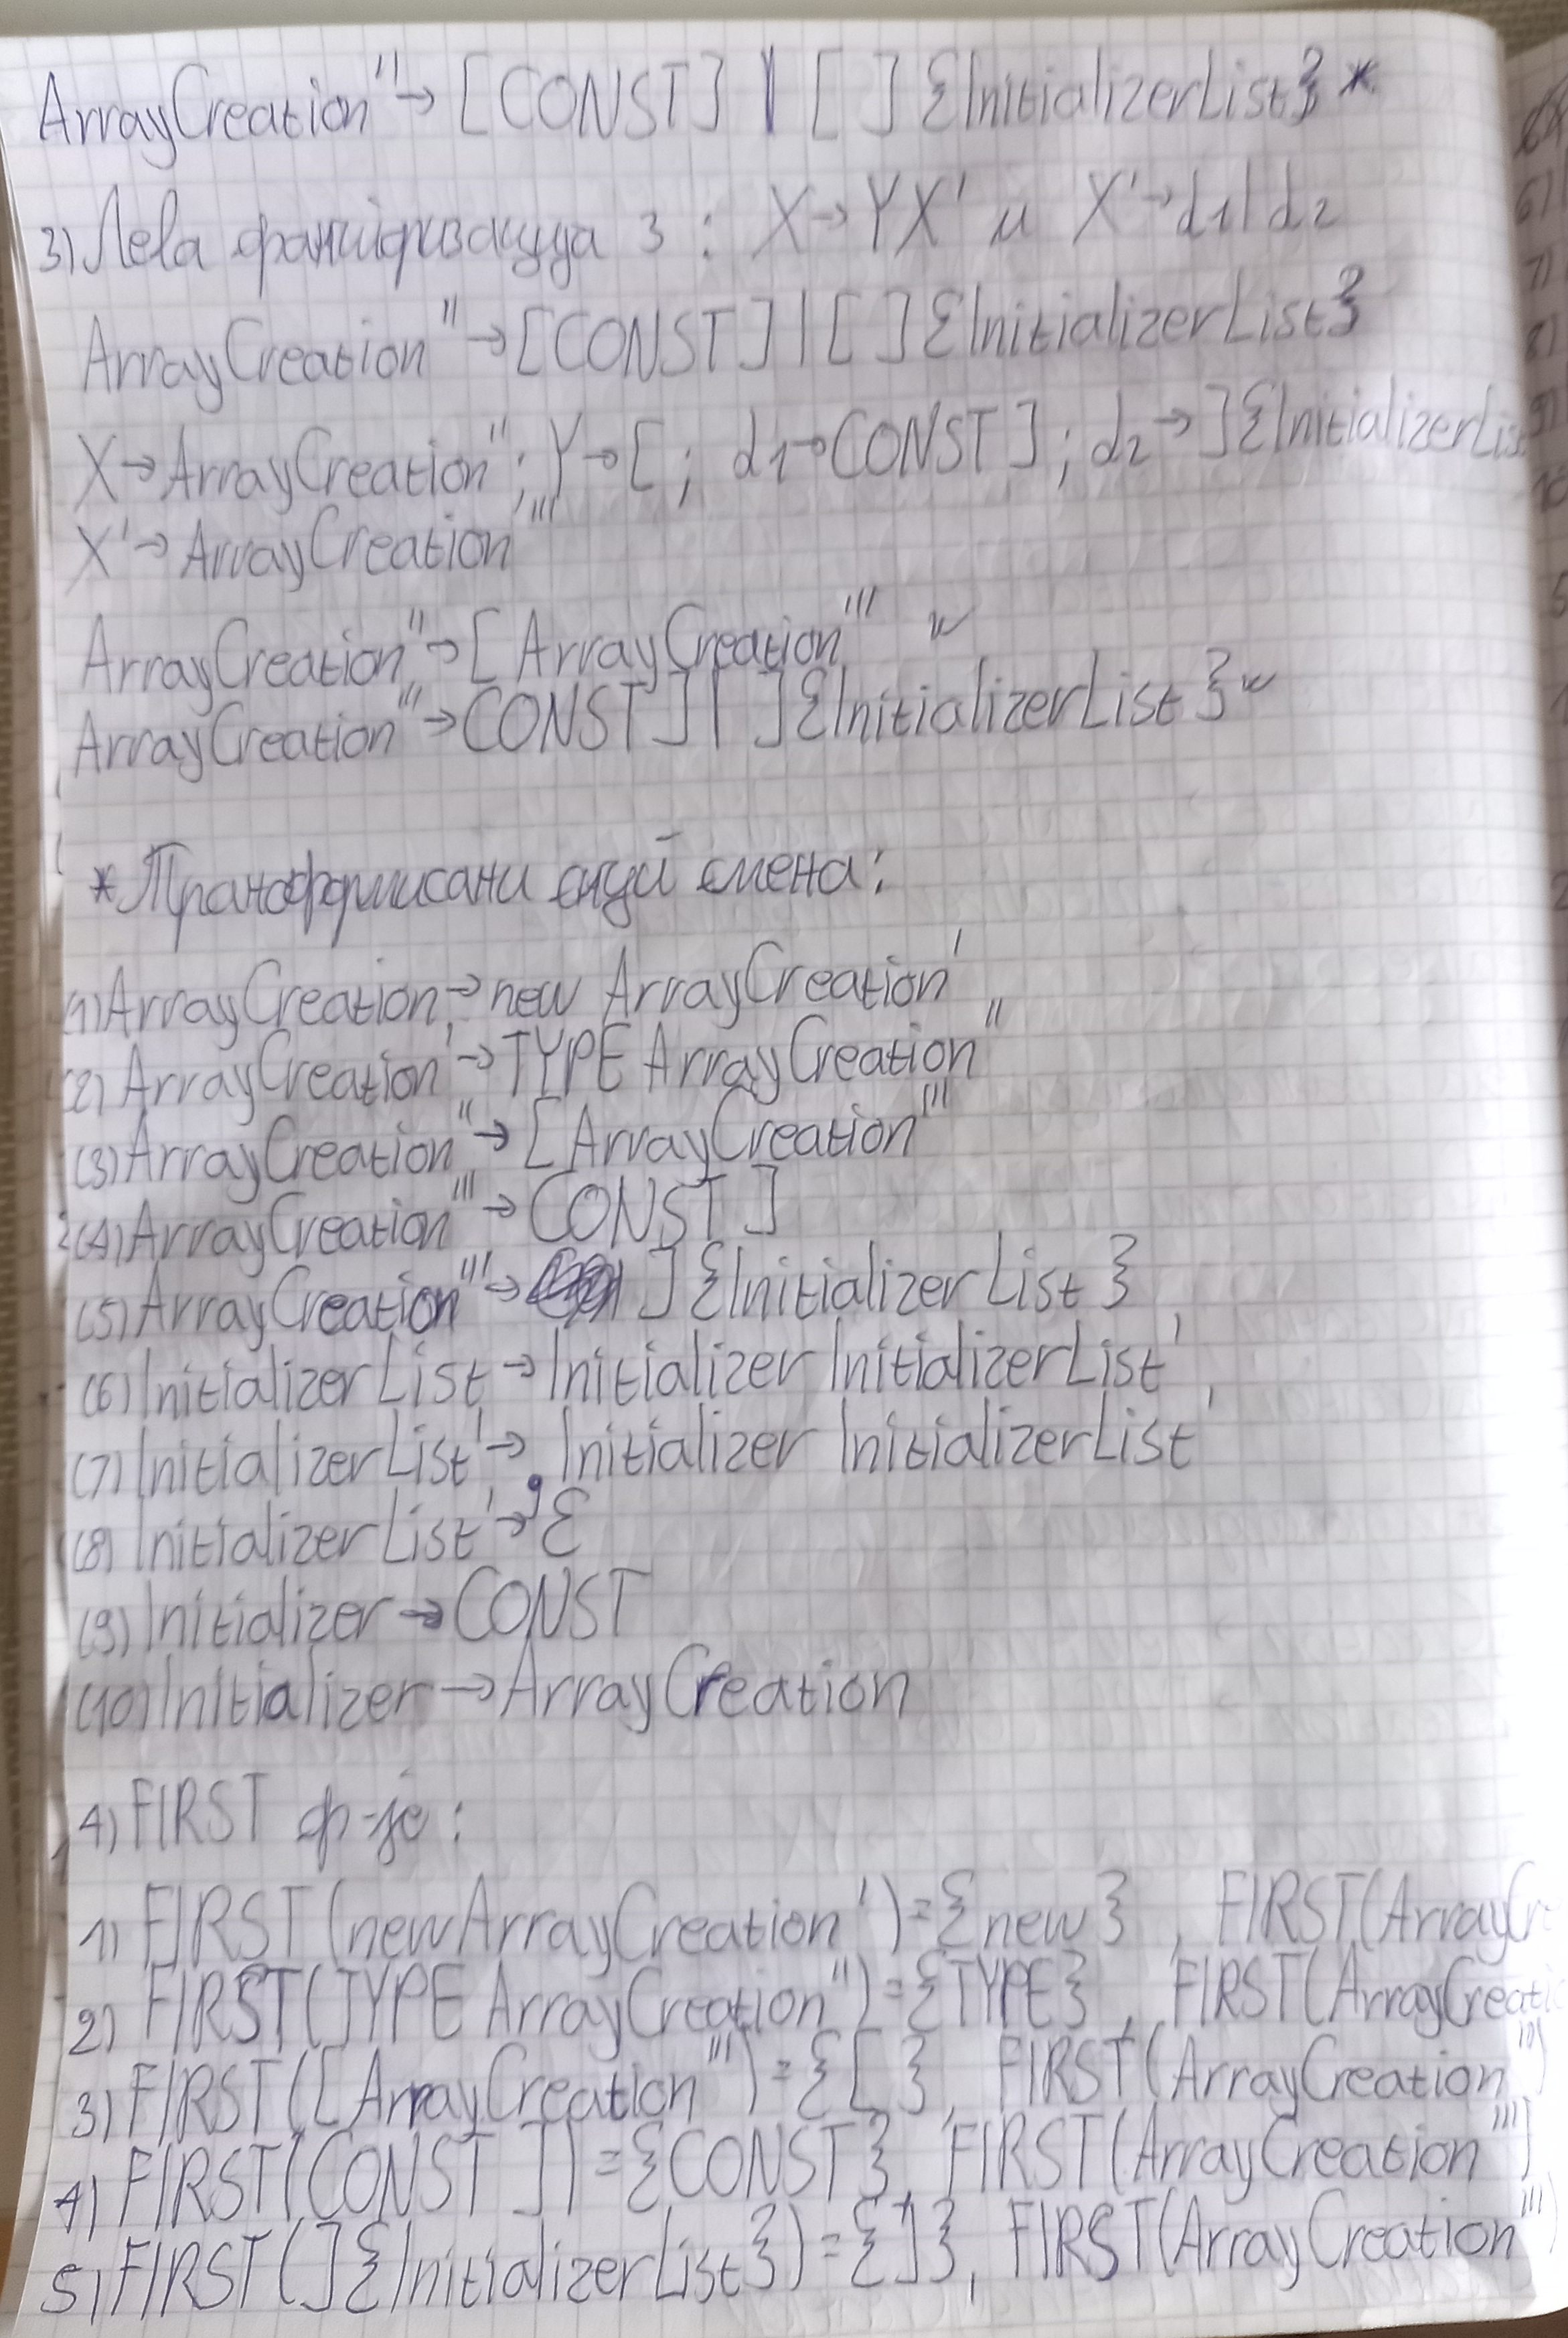 ArrayCreation'' → [CONST] | [ ] {InitializerList} *
3) Лева факторизација 3 : X → YX' и X' → d1 | d2
ArrayCreation'' → [CONST] | [ ] {InitializerList}
X → ArrayCreation''; Y → [ ; d1 → CONST ] ; d2 → ] {InitializerLis
X' → ArrayCreation'''
ArrayCreation'' → [ ArrayCreation'''
ArrayCreation''' → CONST ] | ] {InitializerList }
* Трансформисани смена:
(1) ArrayCreation → new ArrayCreation'
(2) ArrayCreation' → TYPE ArrayCreation''
(3) ArrayCreation'' → [ ArrayCreation'''
(4) ArrayCreation''' → CONST ]
(5) ArrayCreation''' → ] {InitializerList }
(6) InitializerList → Initializer InitializerList'
(7) InitializerList' → , Initializer InitializerList'
(8) InitializerList' → ε
(9) Initializer → CONST
(10) Initializer → ArrayCreation
4) FIRST ф-је :
1) FIRST (new ArrayCreation') = {new} , FIRST(ArrayCr
2) FIRST(TYPE ArrayCreation'') = {TYPE} , FIRST(ArrayCreati
3) FIRST([ ArrayCreation''') = {[ } , FIRST(ArrayCreation'')
4) FIRST(CONST ]) = {CONST} , FIRST(ArrayCreation''')
5) FIRST(] {InitializerList}) = {]} , FIRST(ArrayCreation''')